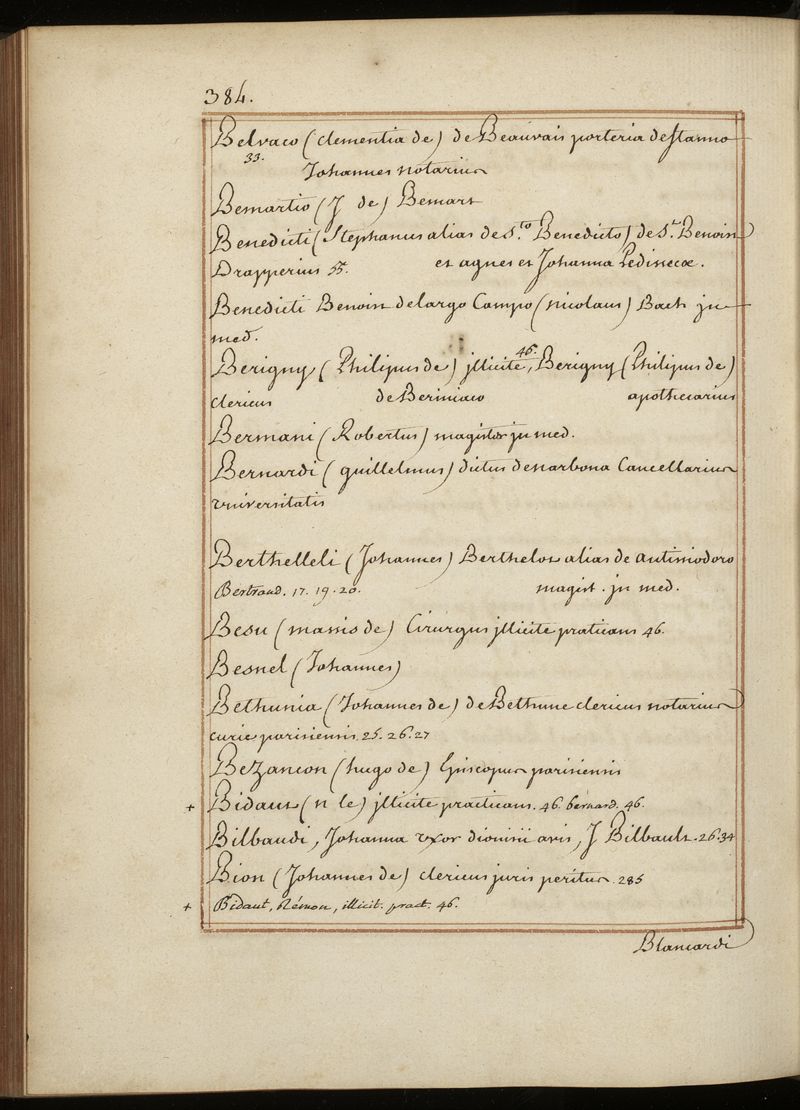 384.
Belvaco (clementia de) de Beauvais porteria de stanno
33.
Johannes notarius
Bemartio (J de) Bemart
Benedicti (Stephanus alias de S.to Benedicto) de S.t Benoist
Drapperius 55. et agnes et Johanna Pedissecæ.
Benedicti Benoist de largo Campo (nicolaus) Bach jn
med.
Berigny (Philipus de) jllicite 46., Berigny (Philipus de)
clericus de Beriniaco apothecarius
Bermani (Robertus) magister jn med.
Bernardi (guillelmus) dictus de narbona Cancellarius
vniversitatis
Berthelleli (Johannes) Berthelot alias de antissiodoro
Bertraud. 17. 19. 20. magist. jn med.
Besu (massis de) Cirurgus jllicite praticans 46.
Besnel (Johannes)
Bethunia (Johannes de) de Bethune clericus notarius
curie parisiensis 25. 26. 27
Bezancon (hugo de) Episcopus parisiensis
+ Bidaut (n le) jllicite practicans. 46. bernard. 46.
Bilbaudi, Johanna vxor dionisii avis, J Bilbault. 26. 34
Bion (Johannes de) clericus juris peritus 285
+ Bidaut, Rémon, illicit. pract. 46.
Blancardi